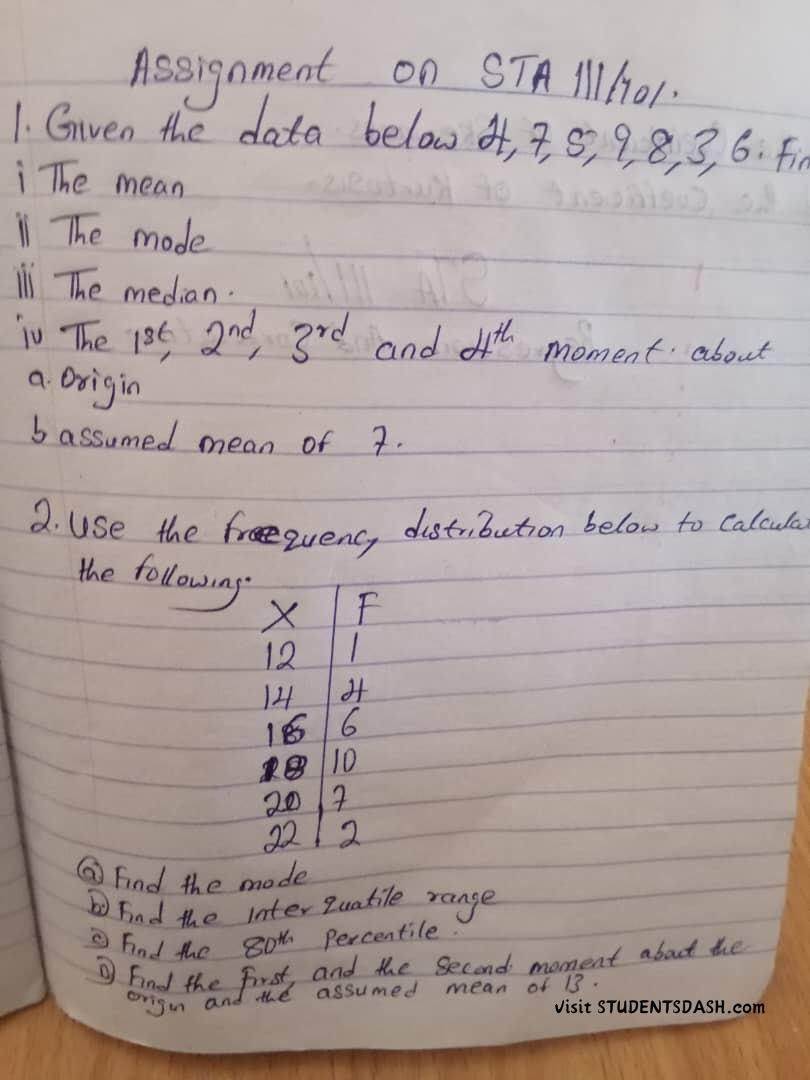 Assignment on STA 111/101.
1. Given the data below 4, 7, 5, 9, 8, 3, 6. Fin
i The mean
ii The mode
iii The median.
iv The 1st, 2nd, 3rd and 4th moment. about
a. Origin
b assumed mean of 7.
2. Use the freequency distribution below to Calcula
the following.
X F
12 1
14 4
16 6
18 10
20 7
22 2
(a) Find the mode
(b) Find the Inter quatile range
(c) Find the 80th Percentile.
(D) Find the first, and the second moment about the
origin and the assumed mean of 13.
Visit STUDENTSDASH.com